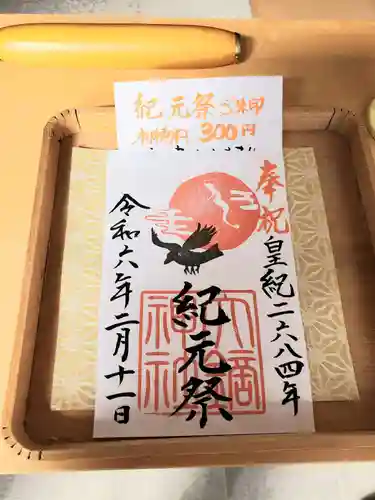 紀元祭 御朱印
初穂料 300円
奉祝
皇紀二六八四年
紀元祭
令和六年二月十一日